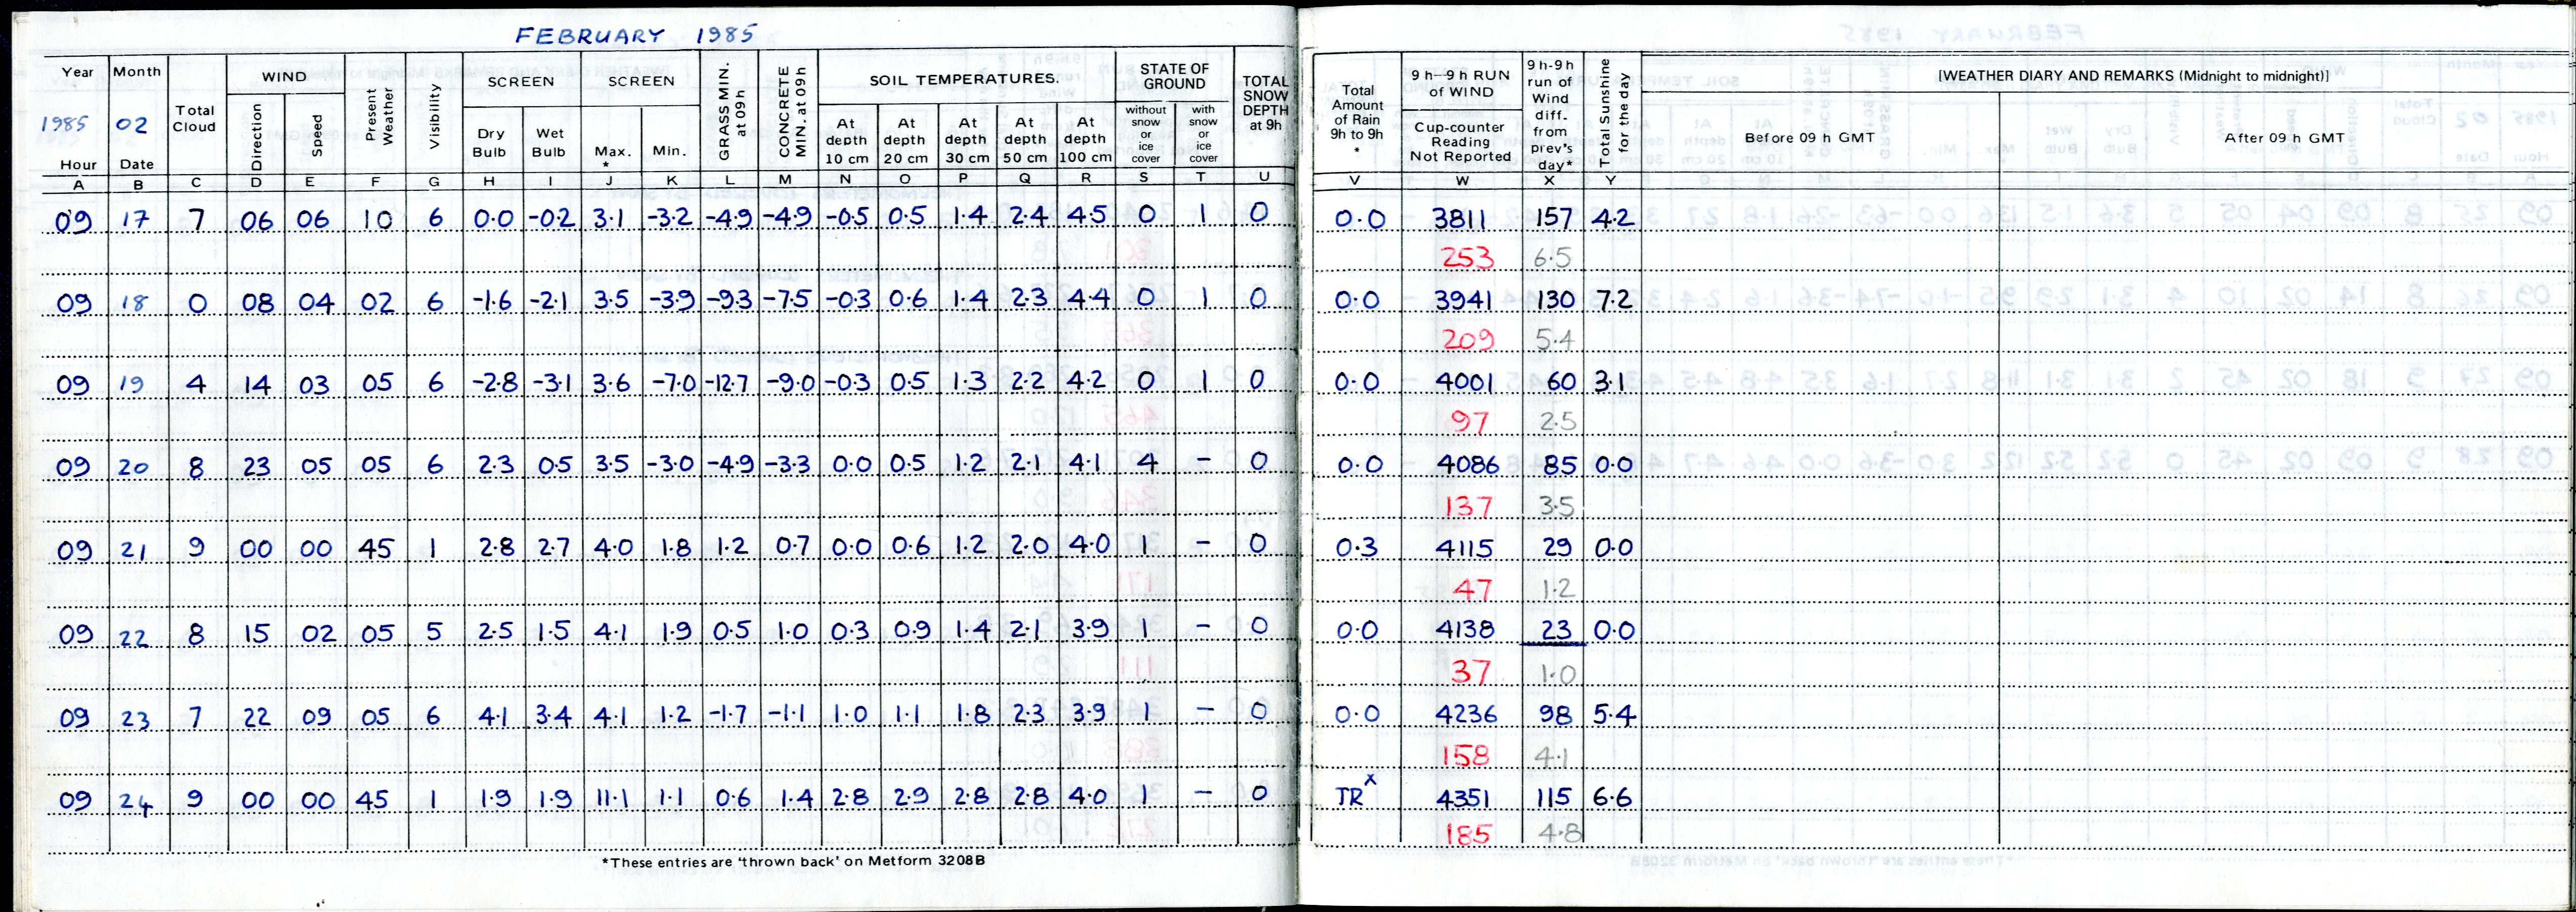 FEBRUARY 1985
Year Month Total Cloud WIND Present Weather Visibility SCREEN SCREEN GRASS MIN. at 09h CONCRETE MIN. at 09h SOIL TEMPERATURES. STATE OF GROUND TOTAL SNOW DEPTH at 9h Total Amount of Rain 9h to 9h * 9 h—9 h RUN of WIND 9 h-9 h run of Wind diff. from prev's day* Total Sunshine for the day [WEATHER DIARY AND REMARKS (Midnight to midnight)]
1985 02 Direction Speed Dry Bulb Wet Bulb Max. * Min. At depth 10 cm At depth 20 cm At depth 30 cm At depth 50 cm At depth 100 cm without snow or ice cover with snow or ice cover Cup-counter Reading Not Reported Before 09 h GMT After 09 h GMT
Hour Date
A B C D E F G H I J K L M N O P Q R S T U V W X Y
09 17 7 06 06 10 6 0.0 -0.2 3.1 -3.2 -4.9 -4.9 -0.5 0.5 1.4 2.4 4.5 0 1 0 0.0 3811 157 4.2
253 6.5
09 18 0 08 04 02 6 -1.6 -2.1 3.5 -3.9 -9.3 -7.5 -0.3 0.6 1.4 2.3 4.4 0 1 0 0.0 3941 130 7.2
209 5.4
09 19 4 14 03 05 6 -2.8 -3.1 3.6 -7.0 -12.7 -9.0 -0.3 0.5 1.3 2.2 4.2 0 1 0 0.0 4001 60 3.1
97 2.5
09 20 8 23 05 05 6 2.3 0.5 3.5 -3.0 -4.9 -3.3 0.0 0.5 1.2 2.1 4.1 4 - 0 0.0 4086 85 0.0
137 3.5
09 21 9 00 00 45 1 2.8 2.7 4.0 1.8 1.2 0.7 0.0 0.6 1.2 2.0 4.0 1 - 0 0.3 4115 29 0.0
47 1.2
09 22 8 15 02 05 5 2.5 1.5 4.1 1.9 0.5 1.0 0.3 0.9 1.4 2.1 3.9 1 - 0 0.0 4138 23 0.0
37 1.0
09 23 7 22 09 05 6 4.1 3.4 4.1 1.2 -1.7 -1.1 1.0 1.1 1.8 2.3 3.9 1 - 0 0.0 4236 98 5.4
158 4.1
09 24 9 00 00 45 1 1.9 1.9 11.1 1.1 0.6 1.4 2.8 2.9 2.8 2.8 4.0 1 - 0 TR x 4351 115 6.6
185 4.8
*These entries are 'thrown back' on Metform 3208B